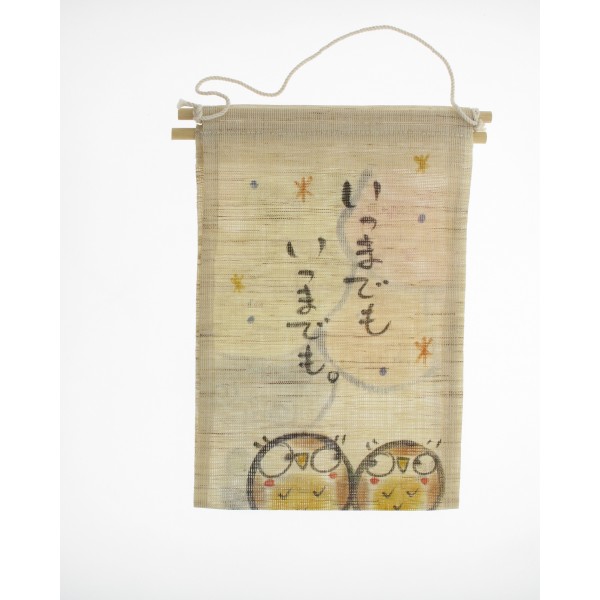 いつまでも
いつまでも。